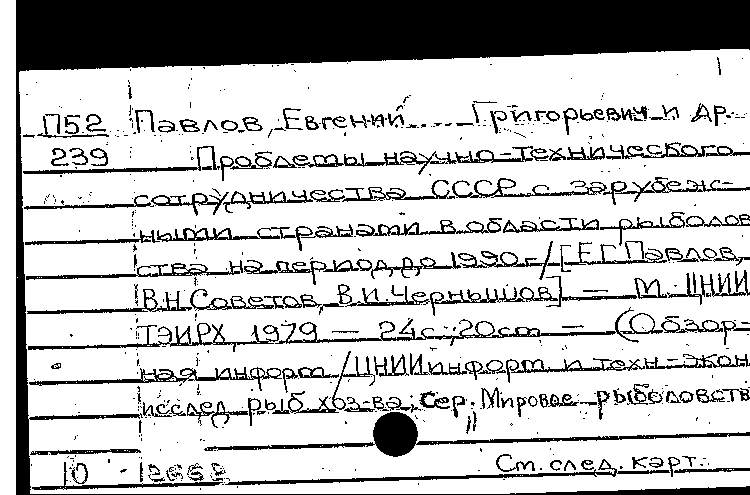 П52 Павлов, Евгений Григорьевич и др.
239 Проблемы научно-технического
сотрудничества СССР с зарубеж-
ными странами в области рыболов
ства на период до 1990 г. / [Е.Г. Павлов,
В.Н. Советов, В.И. Чернышов] — М.: ЦНИИ
ТЭИРХ, 1979 — 24с.; 20см — (Обзор-
ная информ / ЦНИИ информ и техн-экон
исслед рыб хоз-ва; Сер. Мировое рыболовств
10
См. след. карт.